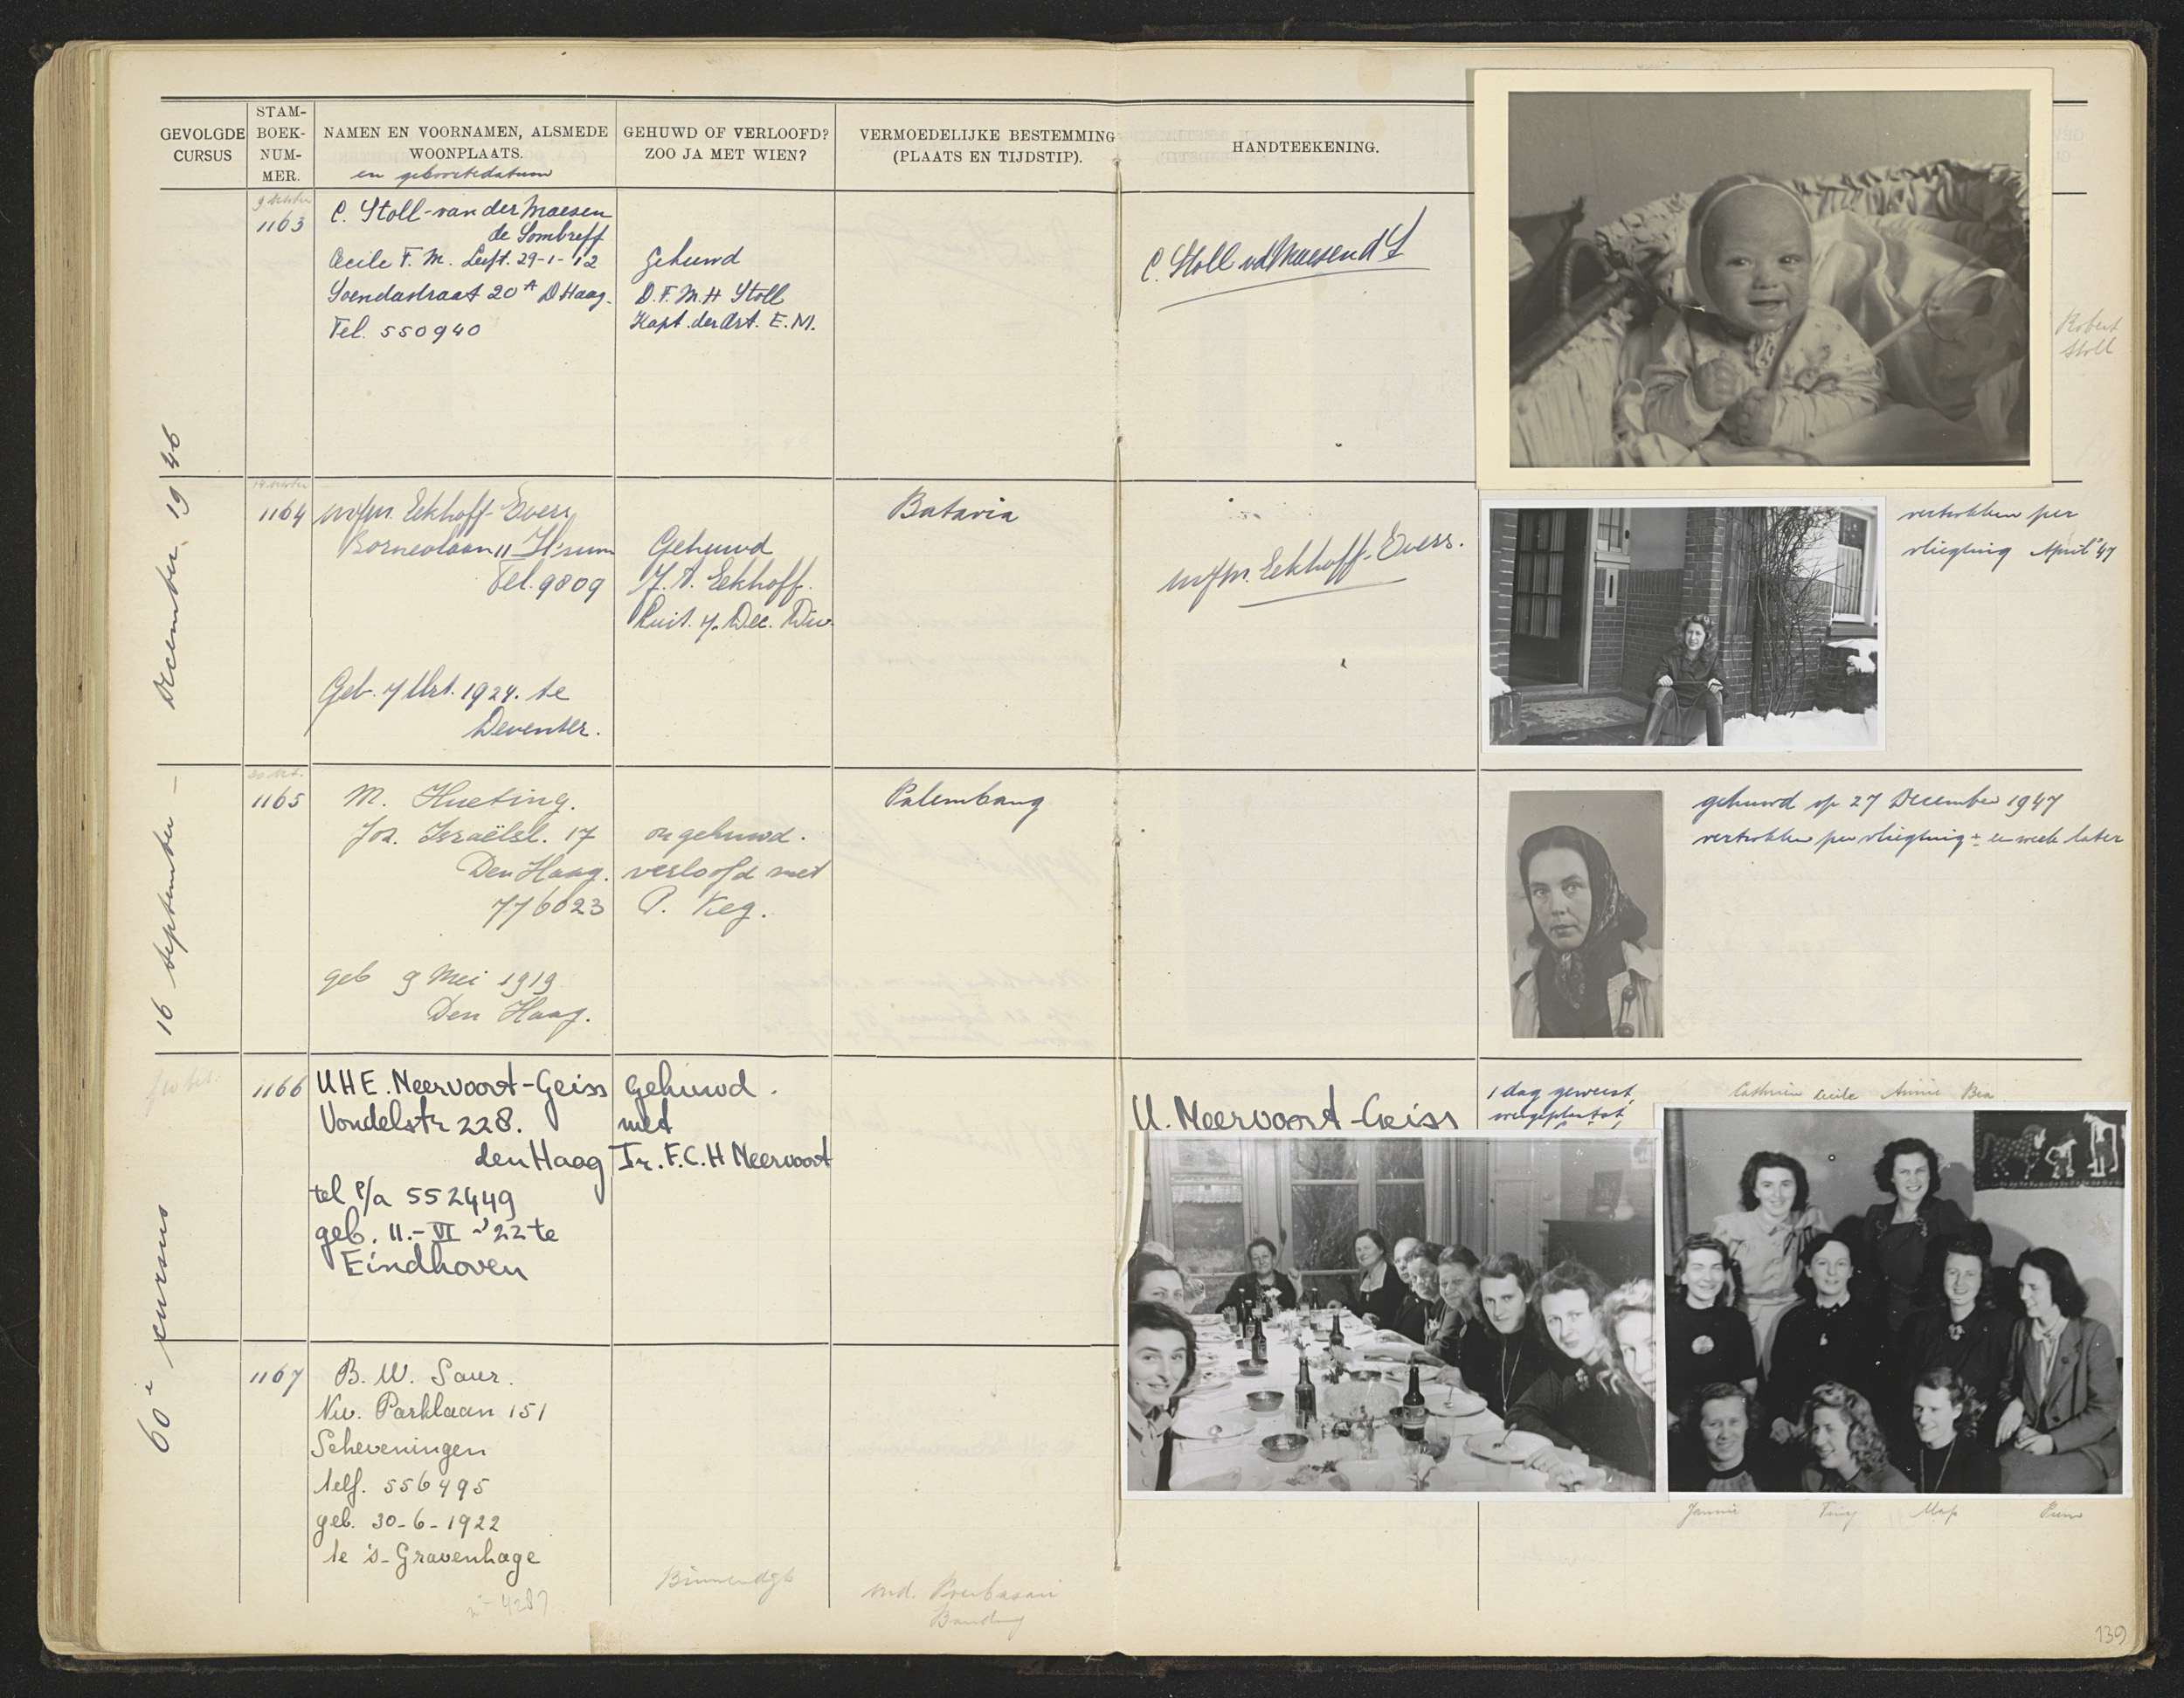 GEVOLGDE CURSUS
STAM-BOEK-NUM-MER.
NAMEN EN VOORNAMEN, ALSMEDE WOONPLAATS.
en geboortedatum
GEHUWD OF VERLOOFD? ZOO JA MET WIEN?
VERMOEDELIJKE BESTEMMING (PLAATS EN TIJDSTIP).
HANDTEEKENING.
60e cursus 16 september – December 1946
9 October
1163
C. Stoll-van der Maesen
de Sombreff
Cecile F. M. Luft. 29-1-'12
Soendastraat 20A D Haag.
Tel. 550940
Gehuwd
D.F.M.H Stoll
Kapt. der Art. E.M.
C. Stoll vd Maesen d S
Robert
Stoll
1164
Eekhoff-Evers
Borneolaan 11 H'sum
Tel. 9809
Geb. 7 Oct. 1924. te
Deventer.
Gehuwd
J. A. Eekhoff.
Huit. 7. Dec. Div.
Batavia
Eekhoff-Evers.
vertrokken per
vliegtuig April '47
1165
M. Hueting.
Joz. Israëlsl. 17
Den Haag.
776023
geb 9 Mei 1919
Den Haag.
ongehuwd.
verloofd met
P. Keg.
Palembang
gehuwd op 27 December 1947
vertrokken per vliegtuig ± een week later
1166
UHE. Neervoort-Geiss
Vondelstr 228.
den Haag
tel p/a 552449
geb. 11.-VI-'22 te
Eindhoven
Gehuwd.
met
Ir. F.C.H Neervoort
U. Neervoort-Geiss
1 dag geweest,
overgeplaatst,
Cathrien Cecile Annie Bea
1167
B. W. Saur.
Nw. Parklaan 151
Scheveningen
telf. 556495
geb. 30-6-1922
te 's-Gravenhage
Binnendijk
Bandung
Jannie Tiny Map
139